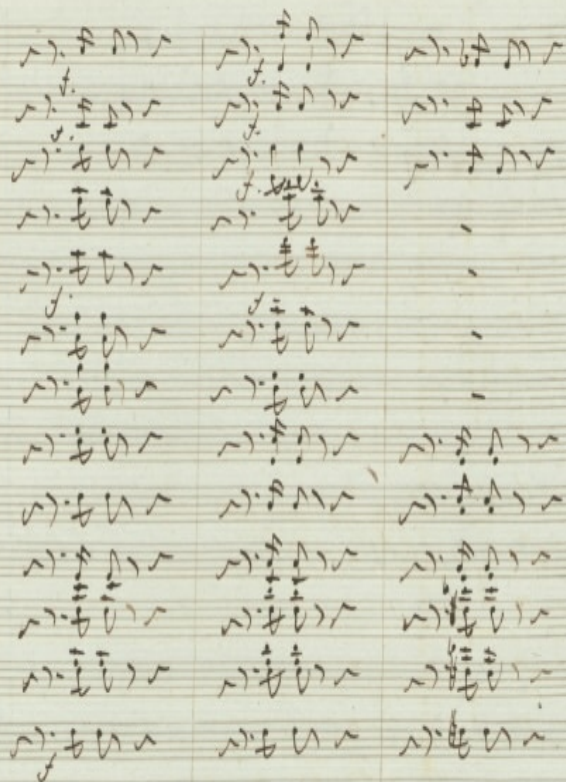 f. f.
f. f.
f.
f. f.
f